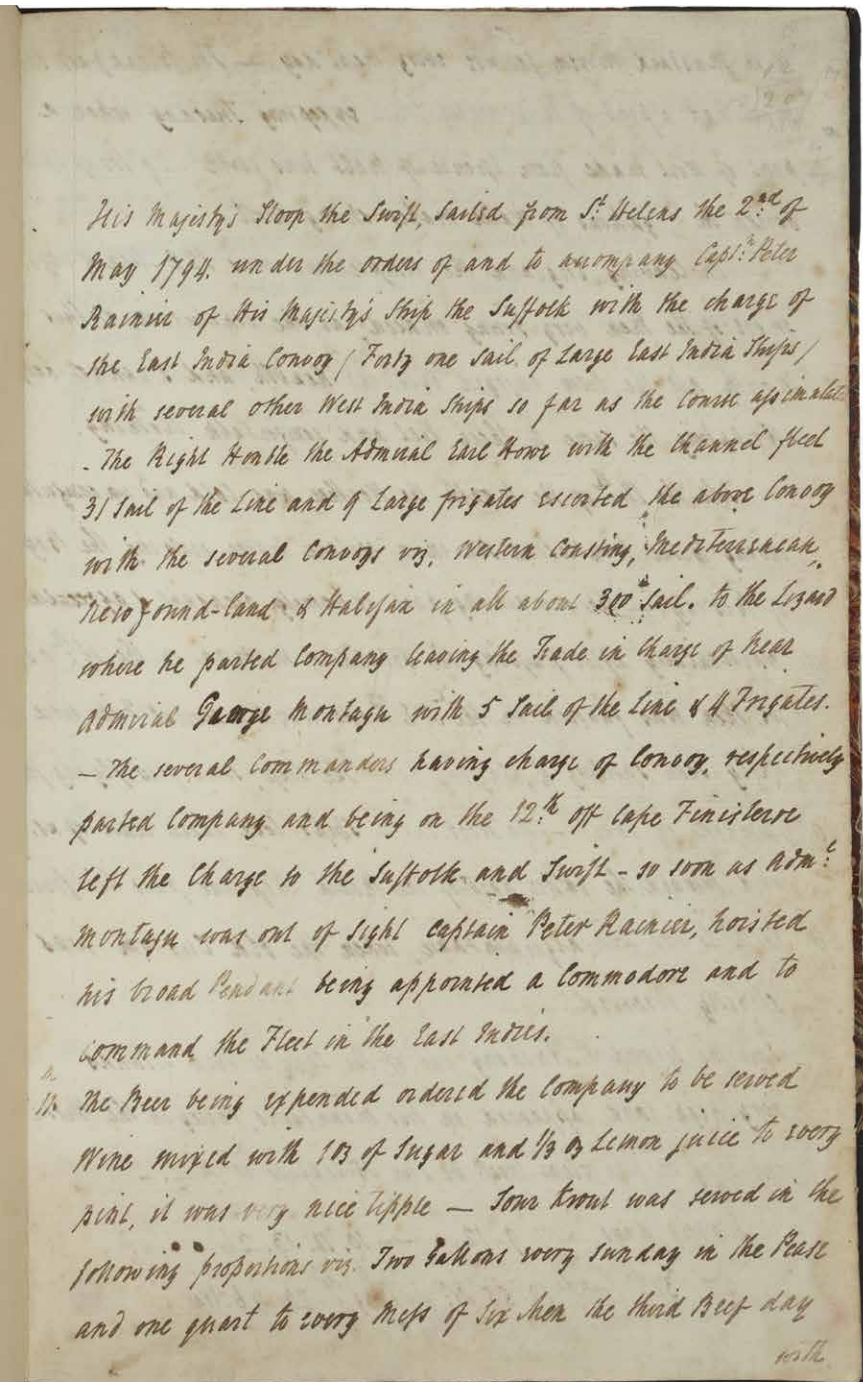 His Majesty's Sloop the Swift, sailed from St. Helens the 2nd. of
May 1794. under the orders of and to accompany Captn: Peter
Rainier of His Majesty's Ship the Suffolk with the charge of
the East India Convoy / Forty one sail of Large East India Ships /
with several other West India Ships so far as the Course assimulates
- The Right Honble the Admiral Earl Howe with the Channel fleet
31 Sail of the Line and 9 Large frigates escorted the above Convoy
with the several Convoys viz, Western Coasting, Mediterranean,
Newfound-land & Halifax in all about 300 Sail. to the Lizard
where he parted Company leaving the Trade in Charge of Rear
Admiral George Montagu with 5 Sail of the Line & 4 Frigates.
— The several Commanders having charge of Convoy, respectively
parted Company and being on the 12.th off Cape Finisterre
left the Charge to the Suffolk and Swift - so soon as Adml:
Montagu was out of Sight Captain Peter Rainier, hoisted
his broad Pendant being appointed a Commodore and to
command the Fleet in the East Indies.
The Beer being expended ordered the Company to be served
Wine mixed with 1 oz of Sugar and 1/3 oz Lemon juice to every
pint, it was very nice tipple — Sour Krout was served in the
following proportions viz. Two Gallons every Sunday in the Pease
and one quart to every Mess of Six Men the third Beef day
with